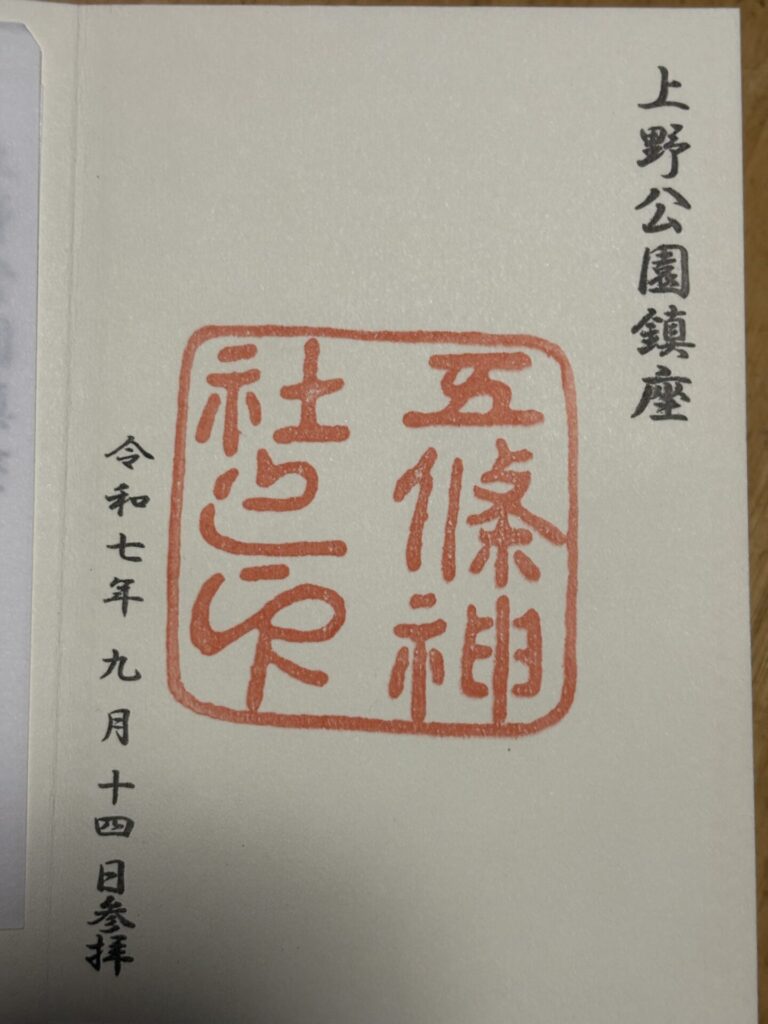 上野公園鎮座
五條神
社之印
令和七年 九月十四日参拝